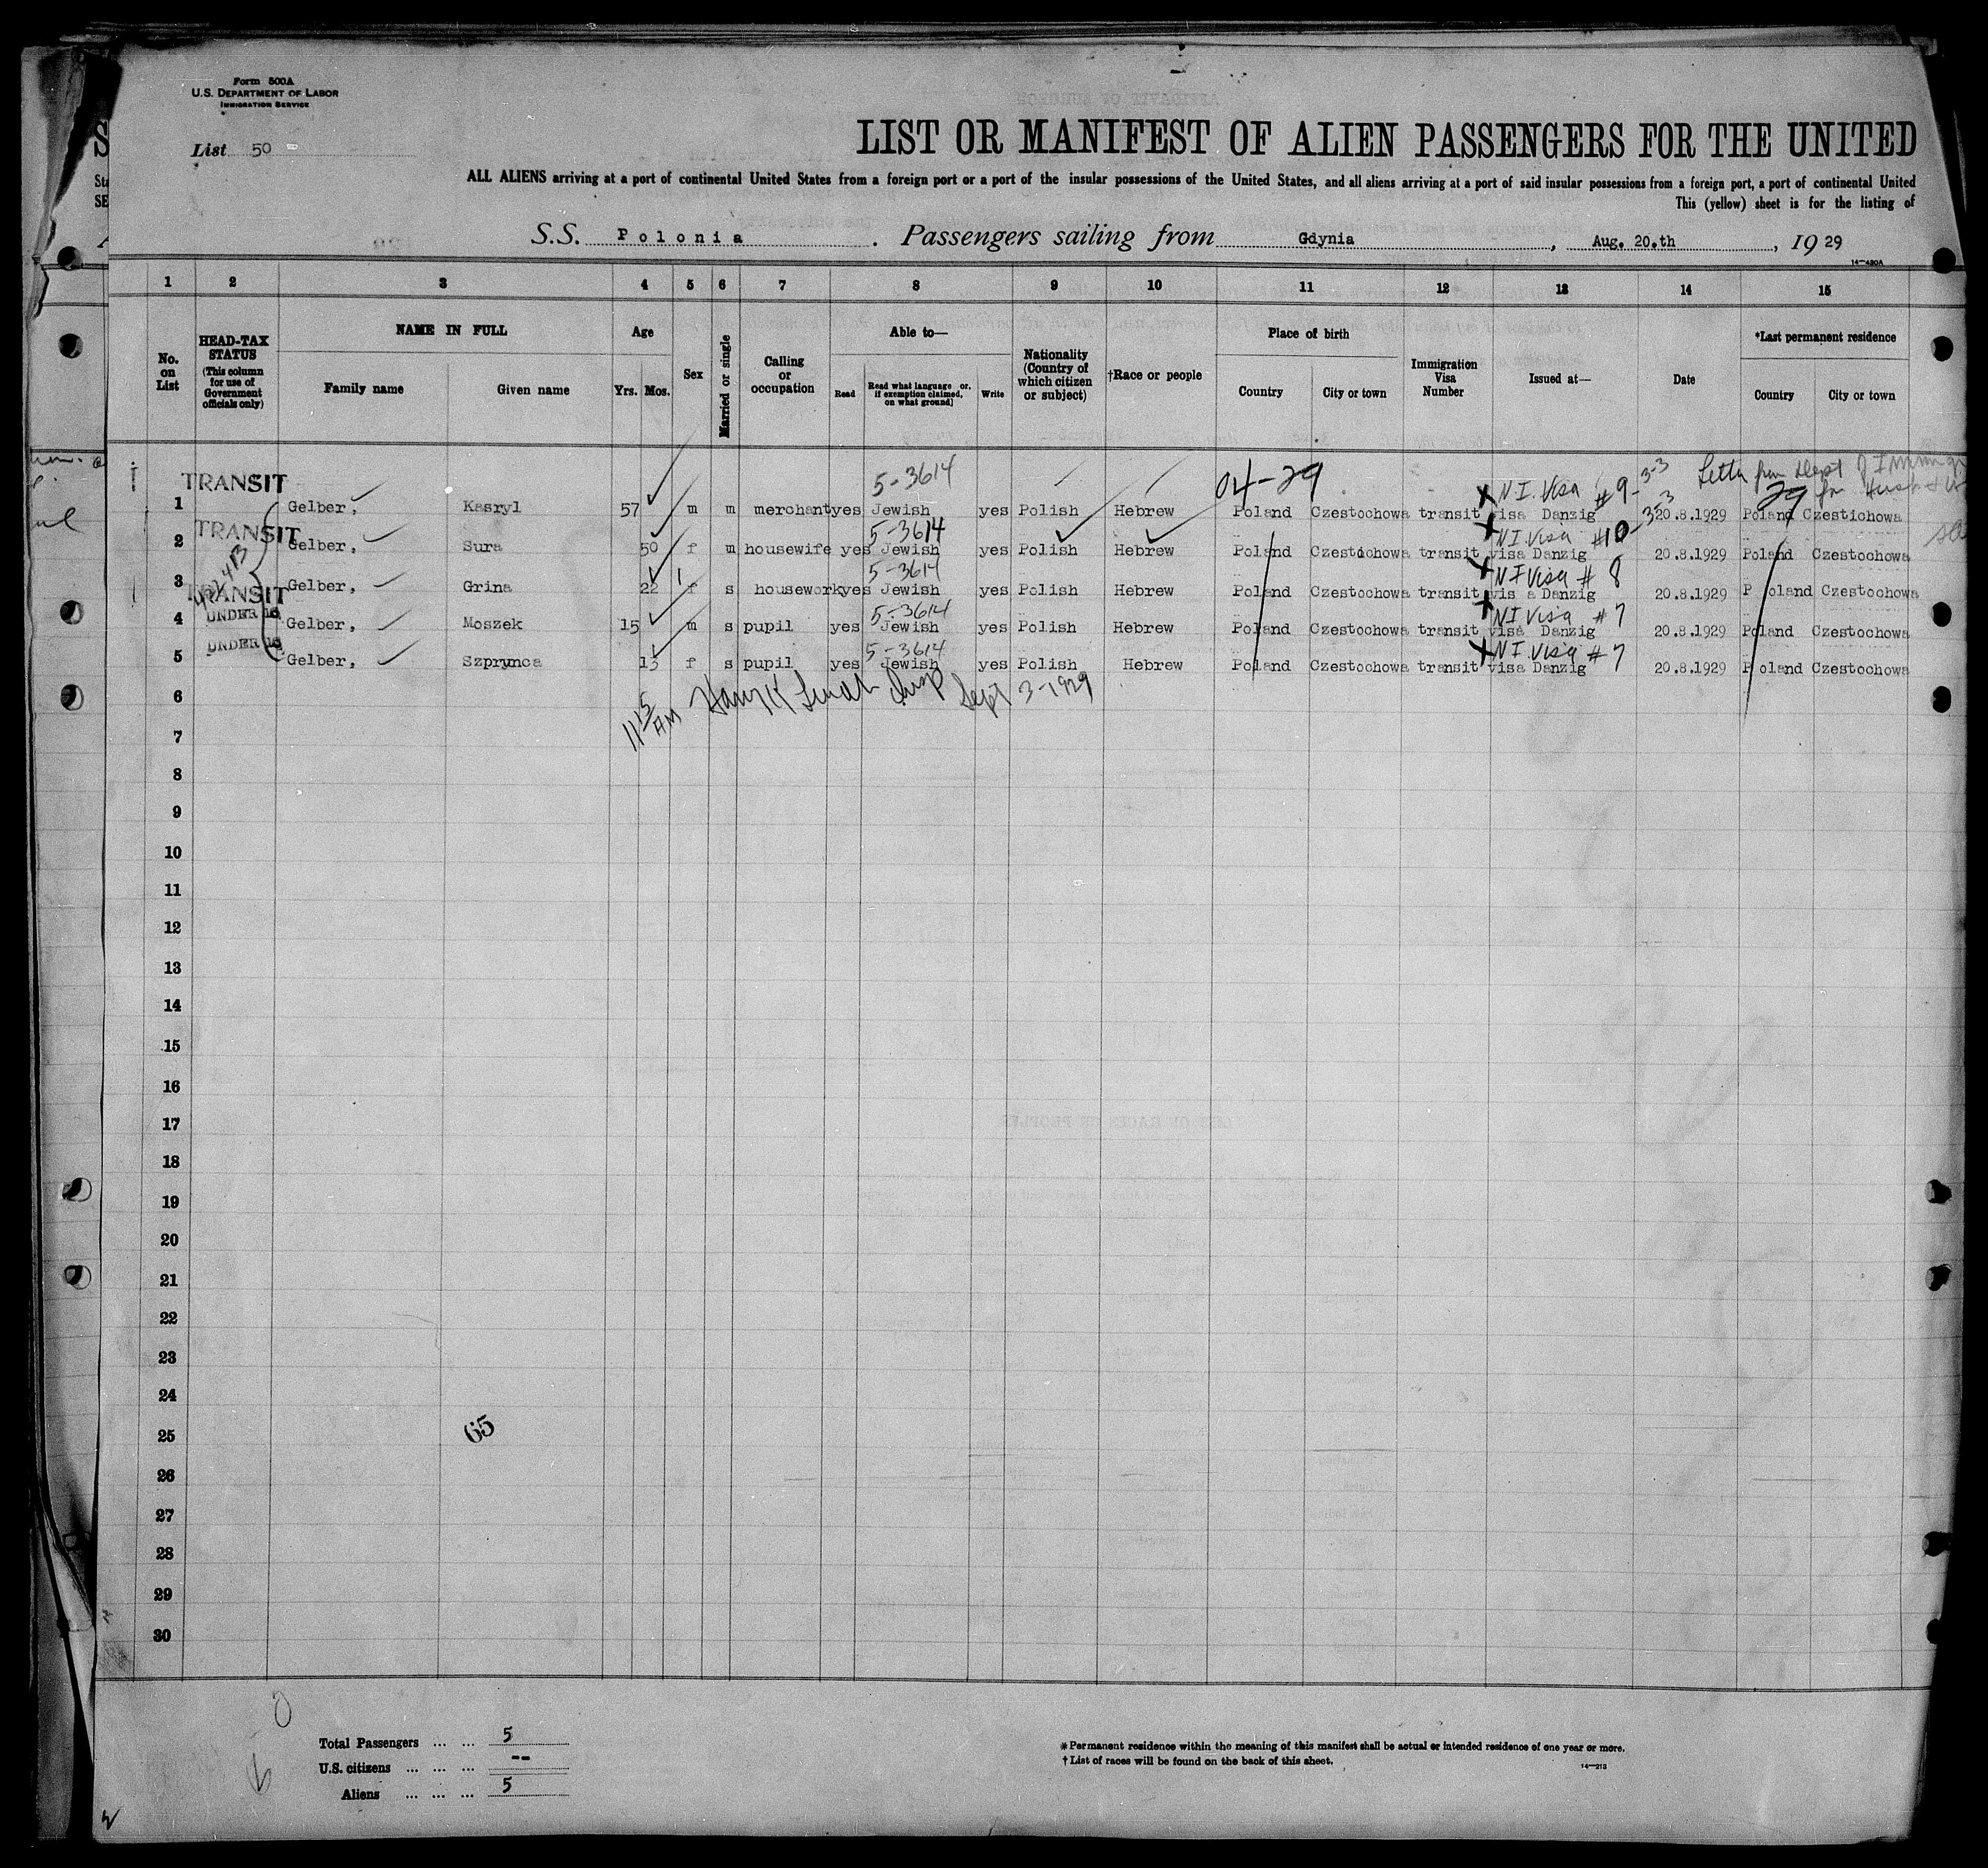 Form 500A
U.S. DEPARTMENT OF LABOR
IMMIGRATION SERVICE
List 50
LIST OR MANIFEST OF ALIEN PASSENGERS FOR THE UNITED
ALL ALIENS arriving at a port of continental United States from a foreign port or a port of the insular possessions of the United States, and all aliens arriving at a port of said insular possessions from a foreign port, a port of continental United
This (yellow) sheet is for the listing of
S.S. Polonia . Passengers sailing from Gdynia , Aug. 20.th , 19 29
14—430A
1 2 3 4 5 6 7 8 9 10 11 12 13 14 15
No. on List
HEAD-TAX STATUS (This column for use of Government officials only)
NAME IN FULL
Family name
Given name
Age
Yrs. Mos.
Sex
Married or single
Calling or occupation
Able to—
Read
Read what language or, if exemption claimed, on what ground]
Write
Nationality (Country of which citizen or subject)
†Race or people
Place of birth
Country
City or town
Immigration Visa Number
Issued at—
Date
*Last permanent residence
Country
City or town
TRANSIT 5-3614 04-29 N I. Visa #9 3-3 Letter from Dept of
1 Gelber, Kasryl 57 m m merchant yes Jewish yes Polish Hebrew Poland Czestochowa transit visa Danzig 20.8.1929 Poland Czestichowa
29
TRANSIT 5-3614 N I. Visa #10
2 Gelber, Sura 50 f m housewife yes Jewish yes Polish Hebrew Poland Czestochowa transit visa Danzig 20.8.1929 Poland Czestochowa
5-3614 N I Visa # 8
3 Gelber, Grina 22 f s housework yes Jewish yes Polish Hebrew Poland Czestochowa transit vis a Danzig 20.8.1929 P oland Czestochowa
TRANSIT
UNDER 16 5-3614 N I Visa # 7
4 Gelber, Moszek 15 m s pupil yes Jewish yes Polish Hebrew Poland Czestochowa transit visa Danzig 20.8.1929 Poland Czestochowa
UNDER 16 5-3614 N I. Visa # 7
5 Gelber, Szprynca 13 f s pupil yes Jewish yes Polish Hebrew Poland Czestochowa transit visa Danzig 20.8.1929 P oland Czestochowa
6
11 15 AM Insp Sept 3-1929
7
8
9
10
11
12
13
14
15
16
17
18
19
20
21
22
23
24
25
65
26
27
28
29
30
Total Passengers ... ... 5
U.S. citizens ... ... ... --
Aliens ... ... ... 5
*Permanent residence within the meaning of this manifest shall be actual or intended residence of one year or more.
†List of races will be found on the back of this sheet.
14—213